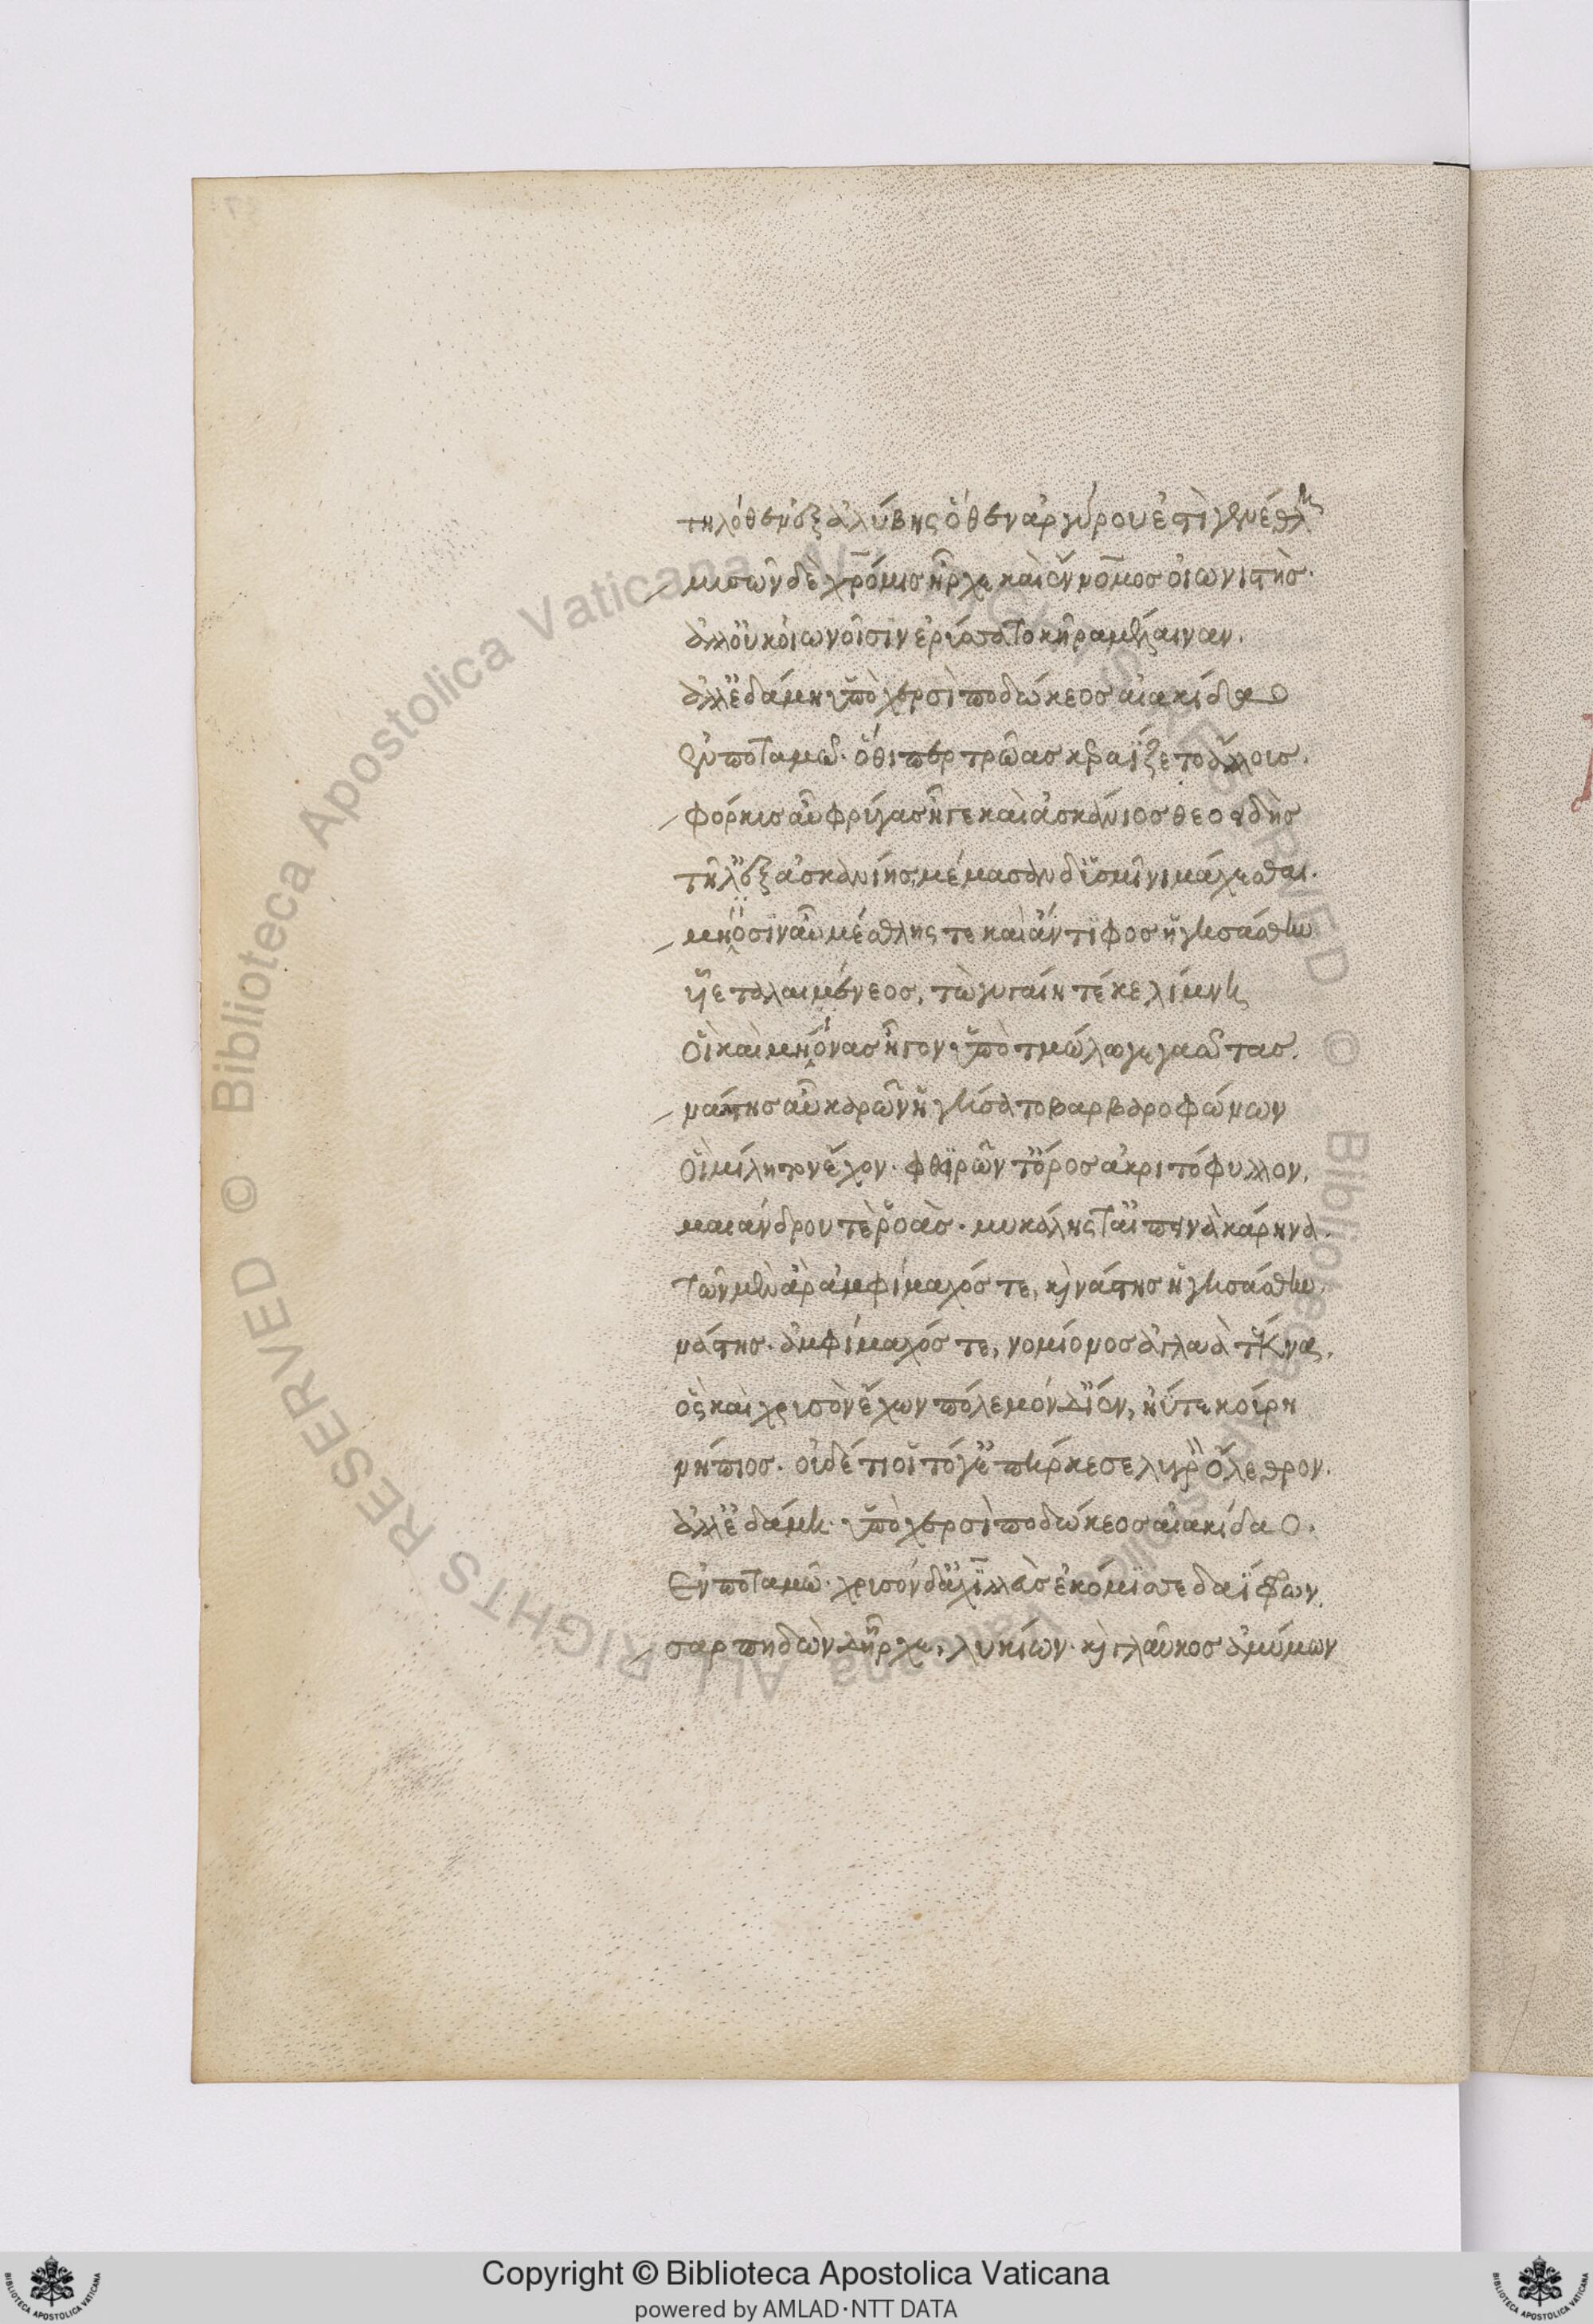 τηλόθεν ἐξ ἀλύβης ὅθεν ἀργύρου ἐστὶ γενέθλη
μυσῶν δὲ χρόμις ἦρχε καὶ ἔννομος οἰωνιστής.
ἀλλ' οὐκ οἰωνοῖσιν ἐρύσατο κῆρα μέλαιναν.
ἀλλ' ἐδάμη ὑπὸ χερσὶ ποδώκεος αἰακίδαο
ἐν ποταμῶ. ὅθι περ τρῶας κεράϊζε το ἄλλους.
φόρκις αὖ φρύγας ἦγε καὶ ἀσκάνιος θεοειδὴς
τῆλ' ἐξ ἀσκανίης, μέμασαν δ' ὑσμῖνι μάχεσθαι.
μηόσιν αὖ μέσθλης τε καὶ ἄντιφος ἡγησάσθην
υἷε ταλαιμένεος, τὼ γυγαίη τέκε λίμνη
οἳ καὶ μηόνας ἦγον ὑπὸ τμώλω γεγαῶτας.
νάστης αὖ καρῶν ἡγήσατο βαρβαροφώνων
οἳ μίλητον ἔχον. φθιρῶν τ' ὄρος ἀκριτόφυλλον,
μαιάνδρου τε ῥοὰς. μυκάλης τ' αἰπεινὰ κάρηνα.
τῶν μὲν ἄρ' ἀμφίμαχός τε, κὶ νάστης ἡγησάσθην.
νάστης. ἀμφίμαχός τε, νομίονος ἀγλαὰ τέκνα.
ὃς καὶ χρυσὸν ἔχων πόλεμόνδ' ἴεν, ἠύτε κούρη
νήπιος. οὐδέ τι οἱ τόγ' ἐπήρκεσε λυγρ' ὄλεθρον.
ἀλλ' ἐδάμη. ὑπὸ χερσὶ ποδώκεος αἰακίδαο.
Ἐν ποταμῶ. χρυσόν δ' ἀχιλλεὺς ἐκόμισσε δαΐφρων.
σαρπηδὼν δ' ἦρχε, λυκίων. κὶ γλαῦκος ἀμύμων
Copyright © Biblioteca Apostolica Vaticana
powered by AMLAD·NTT DATA